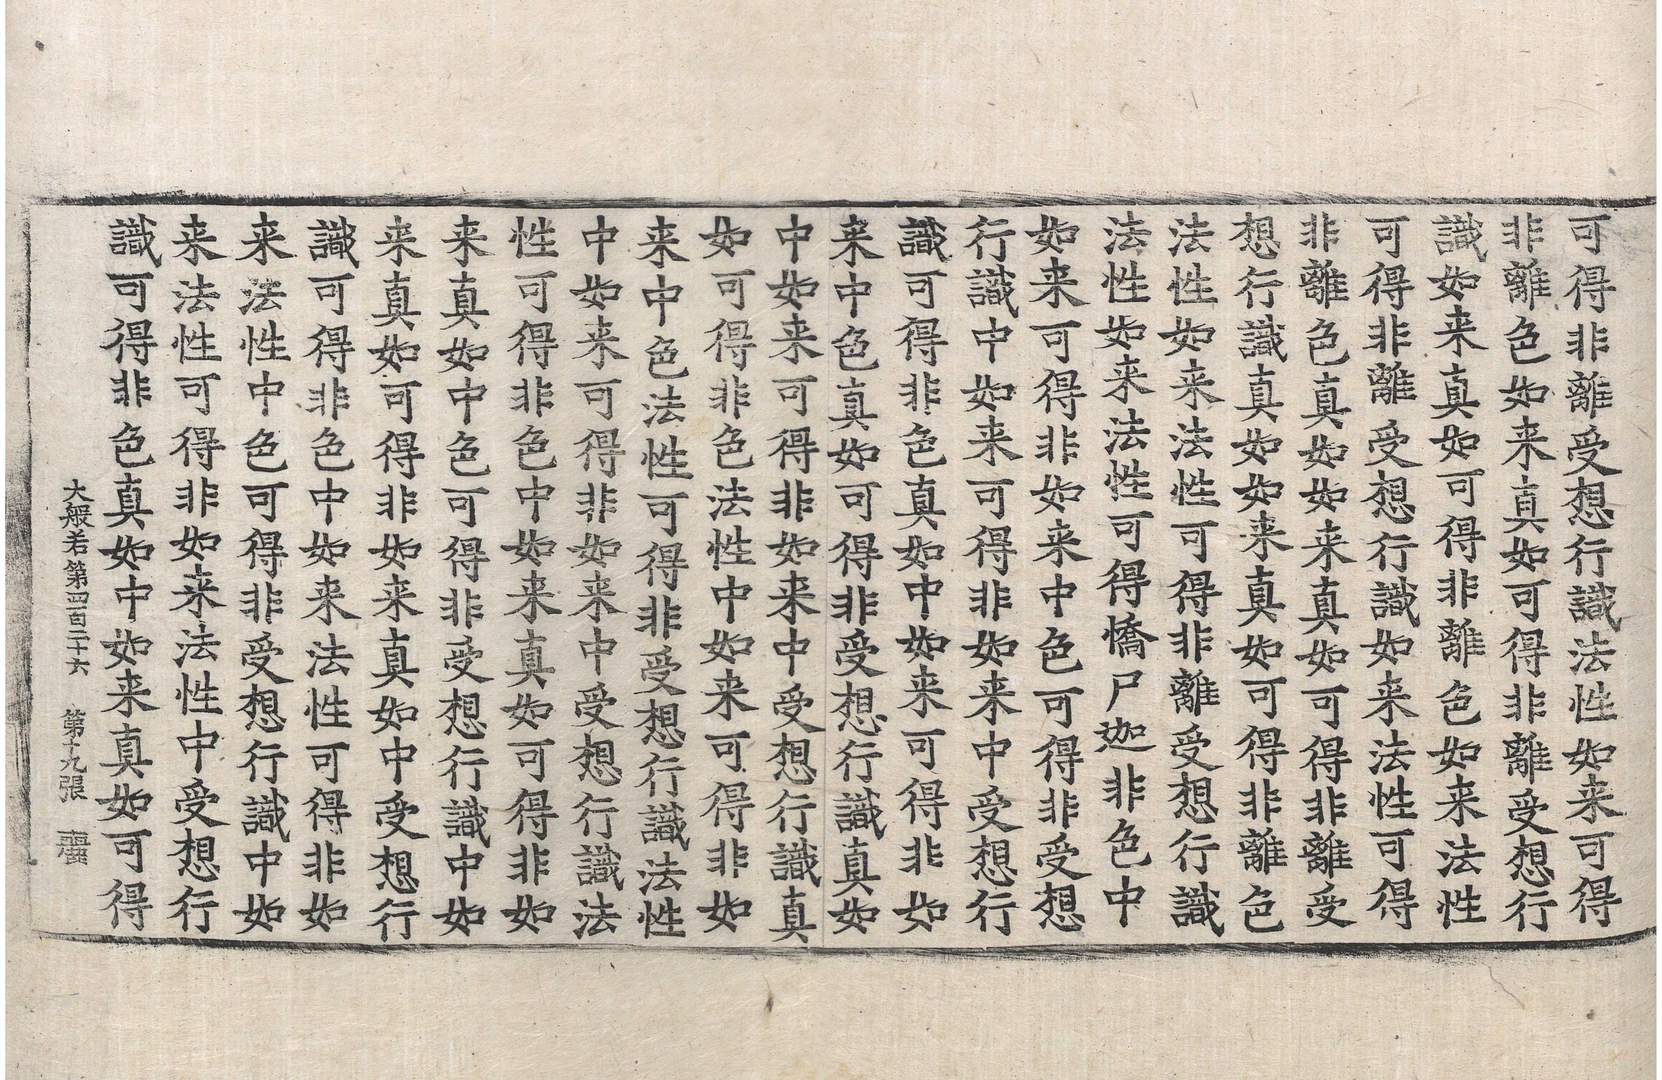 可得非離受想行識法性如来可得
非離色如来真如可得非離受想行
識如来真如可得非離色如来法性
可得非離受想行識如来法性可得
非離色真如如来真如可得非離受
想行識真如如来真如可得非離色
法性如来法性可得非離受想行識
法性如来法性可得憍尸迦非色中
如来可得非如来中色可得非受想
行識中如来可得非如来中受想行
識可得非色真如中如来可得非如
来中色真如可得非受想行識真如
中如来可得非如来中受想行識真
如可得非色法性中如来可得非如
来中色法性可得非受想行識法性
中如来可得非如来中受想行識法
性可得非色中如来真如可得非如
来真如中色可得非受想行識中如
来真如可得非如来真如中受想行
識可得非色中如来法性可得非如
来法性中色可得非受想行識中如
来法性可得非如来法性中受想行
識可得非色真如中如来真如可得
大般若第四百二十六 第十九張